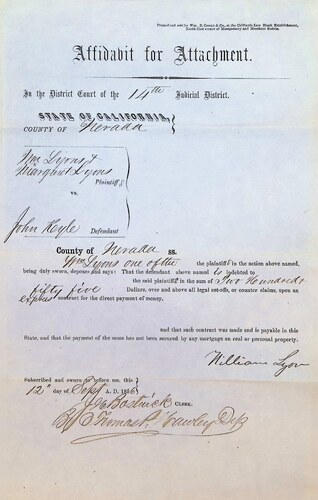 Printed and sold by Wm. B. Cooke & Co., at the California Law Blank Establishment,
North-East corner of Montgomery and Merchant Streets.
Affidavit for Attachment.
In the District Court of the 14th Judicial District.
STATE OF CALIFORNIA,
COUNTY OF Nevada
Wm Lyons &
Margaret Lyons
Plaintiffs
vs.
John Hoyle Defendant
County of Nevada ss.
Wm Lyons one of the the plaintiffs in the action above named,
being duly sworn, deposes and says: That the defendant above named is indebted to
the said plaintiffs in the sum of Two Hundred
fifty five Dollars, over and above all legal set-offs, or counter claims, upon an
express contract for the direct payment of money.
and that such contract was made and is payable in this
State, and that the payment of the same has not been secured by any mortgage on real or personal property.
William Lyons
Subscribed and sworn to before me, this
12th day of Sept A. D. 185
Bostwick CLERK.
By Thomas P. Hawley Dep